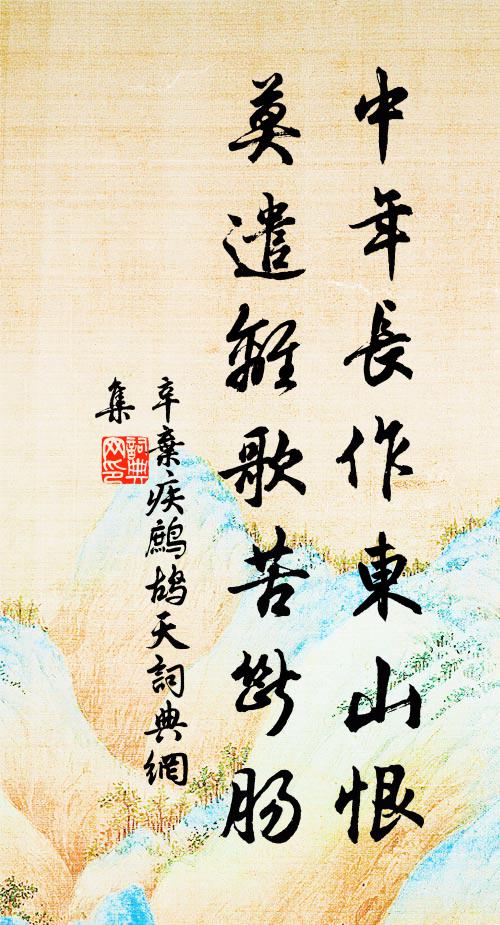 中年長作東山恨
莫遣離歌苦斷腸
辛棄疾鷓鴣天詞典網
集
詞典
网印